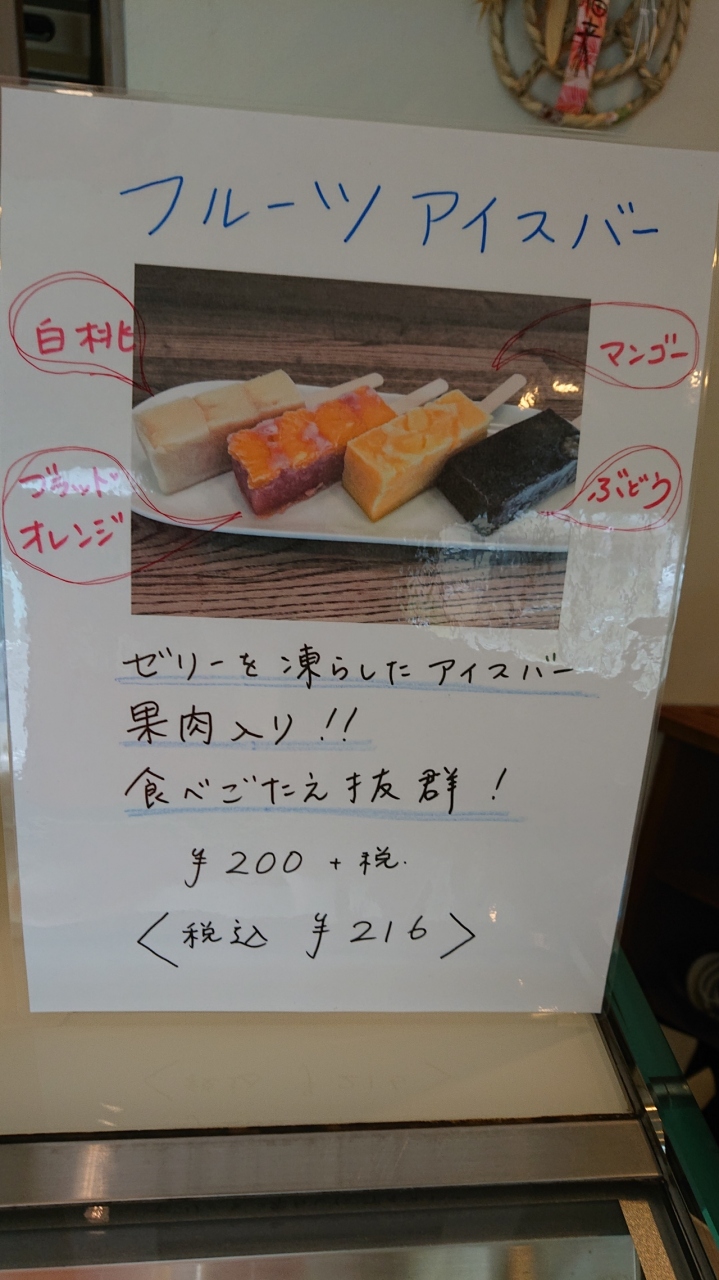 フルーツ アイスバー
白桃
マンゴー
ブラッド
オレンジ
ぶどう
ゼリーを凍らしたアイスバー
果肉入り!!
食べごたえ抜群!
¥200+税.
〈税込 ¥216〉